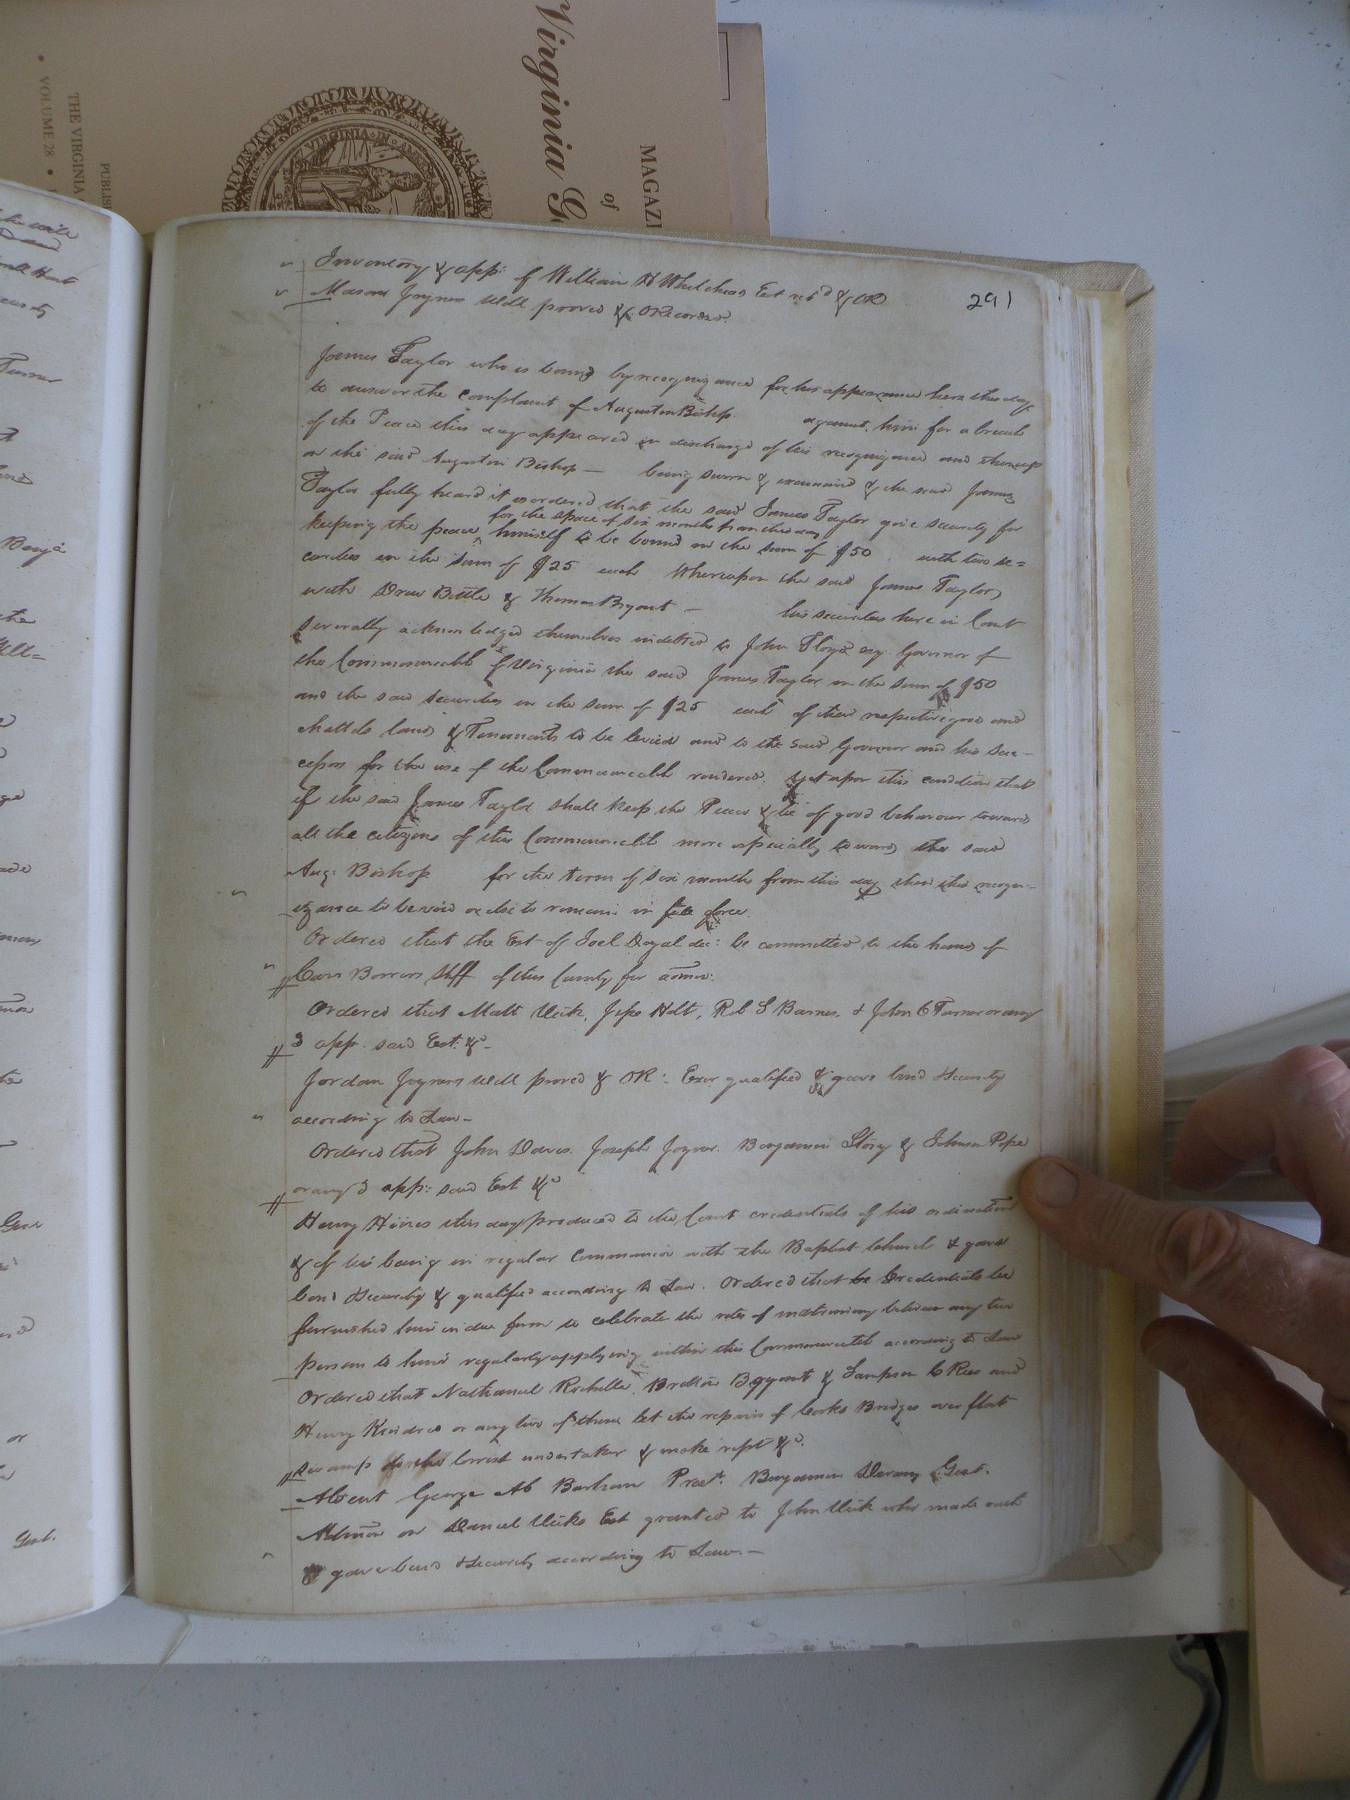 Virginia G
MAGAZI
of
THE VIRGINIA
VOLUME 28
PUBLIS
VIRGINIA
291
Inventory & app: of William H Whitehead Est ret^d & OR
Mason Joyners Will proved & ORecorded.
James Taylor who is bound by recognizance for his appearance here this day
to answer the complaint of Augustin Bishop against him for a breach
of the Peace this day appeared in discharge of his recognizance and thereup
on the said Augustin Bishop — being sworn & examined & the said James
Taylor fully heard it is ordered that the said James Taylor give security for
for the space of six months from this day
keeping the peace ^ himself to be bound in the sum of $50 with two se=
curities in the sum of $25 each Whereupon the said James Taylor,
with Drew Bittle & Thomas Bryant — his securities here in Court
severally acknowledged themselves indebted to John Floyd esq. Governor of
the Commonwealth of Virginia the said James Taylor in the sum of $50
and the said securities in the sum of $25 each of their respective goods and
chattels lands & Tenements to be levied and to the said Governor and his suc-
cessors for the use of the Commonwealth rendered. yet upon this condition that
if the said James Taylor shall keep the Peace & be of good behaviour towards
all the citizens of this Commonwealth more especially towards the said
Aug: Bishop for the term of six months from this day then this recogn-
izance to be void or else to remain in full force.
Ordered that the Est of Joel Doyal dec: be committed to the hands of
Carr Bowers Shff of this County for admon:
Ordered that Matt Vick, Jesse Holt, Rob S Barnes, & John C Turner or any
3 app. said Est: &c-
Jordan Joyners Will proved & OR: Exor qualified & gave bond & Security
according to Law-
Ordered that John Davis. Joseph Joyner. Benjamin Story & Johnson Pope
or any 3 app: said Est &c
Henry Hines this day produced to the Court credentials of his ordination
& of his being in regular communion with the Baptist Church & gave
bond & Security & qualified according to Law. Ordered that be Credentials be
furnished him in due form to celebrate the rites of matrimony between any two
persons to him regularly applying within this Commonwealth according to Law
Ordered that Nathaniel Rochelle, Bryant & Sampson C Reese and
Henry Kindred or any two of them let the repairs of Corks Bridges over flat
swamp to the lowest undertaker & make rept &c.
Absent George Barham Present Benjamin Gent.
Admon on Daniel Vicks Est granted to John Vick who made oath
& gave bond & Security according to Law.—
Turner
Benja
Gent
or
Gent.